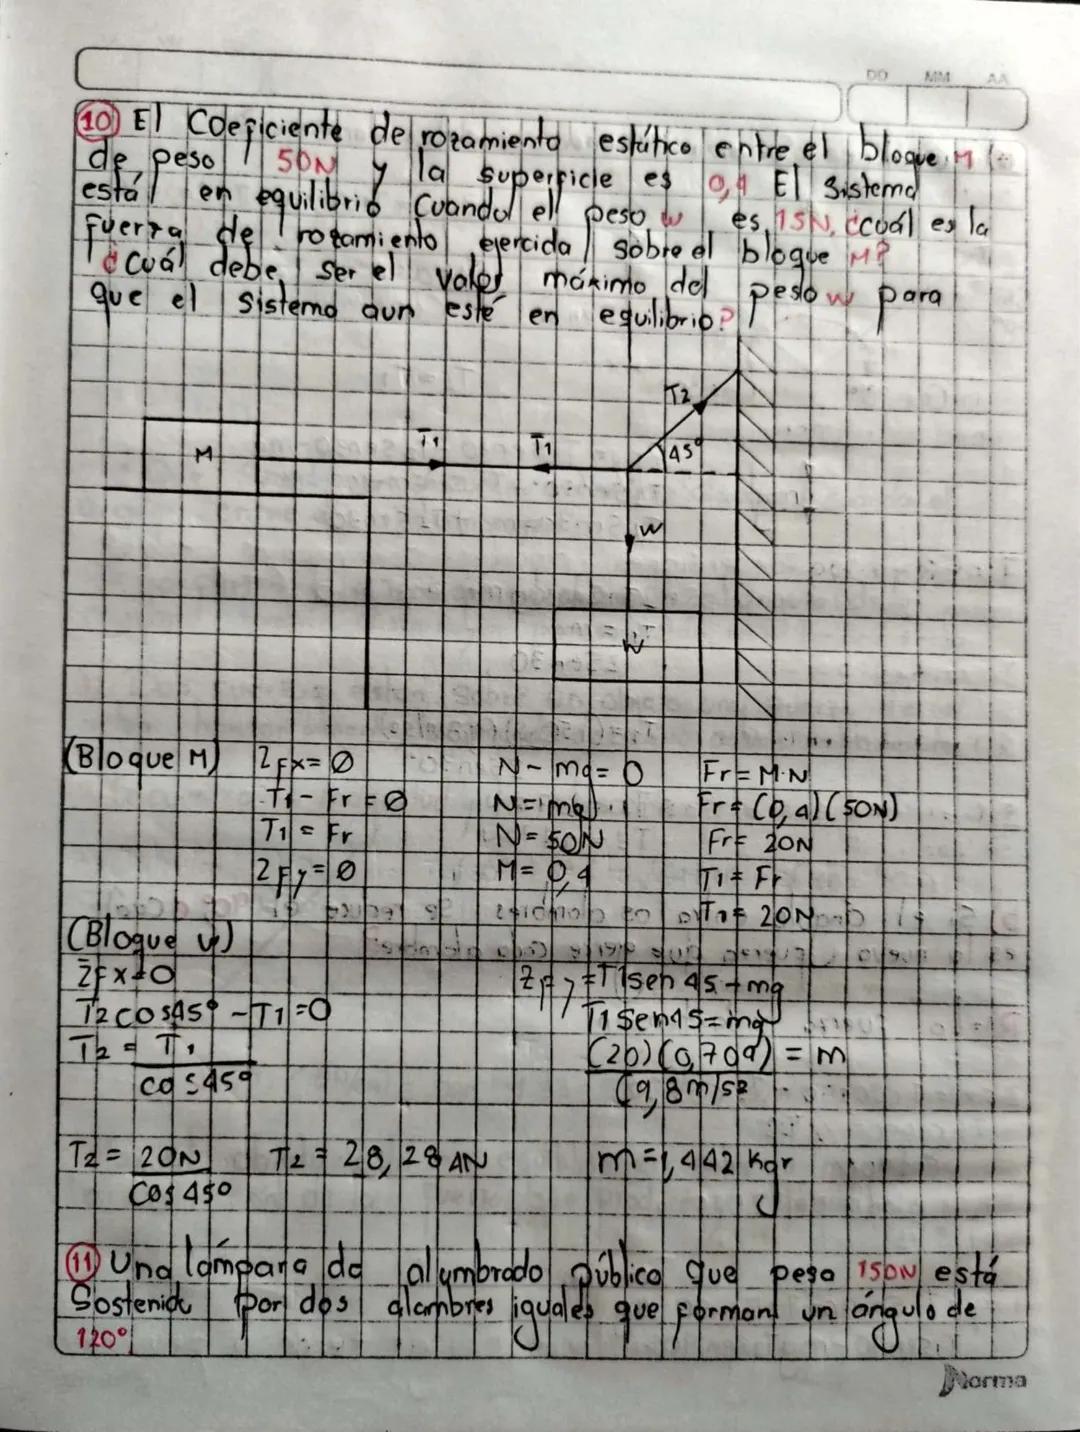 DD MM AA
10) El Coeficiente de rozamiento estático entre el bloque M
de peso 50N y la superficie es 0,4 El Sistema
está en equilibrio Cuando el peso w es 15N, ¿cuál es la
fuerza de rozamiento ejercida sobre el bloque M?
¿Cuál debe ser el valor máximo del peso w para
que el sistema aun esté en equilibrio?
T2
M T1 T1 45°
W
W
(Bloque M) ΣFx=0 N - mg= 0 Fr=M·N
T1 - Fr = 0 N= mg Fr= (0,4)(50N)
T1 = Fr N= 50N Fr= 20N
ΣFy=0 M= 0,4 T1= Fr
T1= 20N
(Bloque w)
ΣFx=0 ΣFy=T1sen45-mg
T2cos45° - T1=0 T1Sen45=mg
T2 = T1 (20)(0,709) = m
cos45° (9,8m/s2
T2= 20N T2= 28,284N m=1,442 Kgr
Cos 45°
11) Una lámpara de alumbrado público que pesa 150N está
Sostenida por dos alambres iguales que forman un ángulo de
120°
Norma